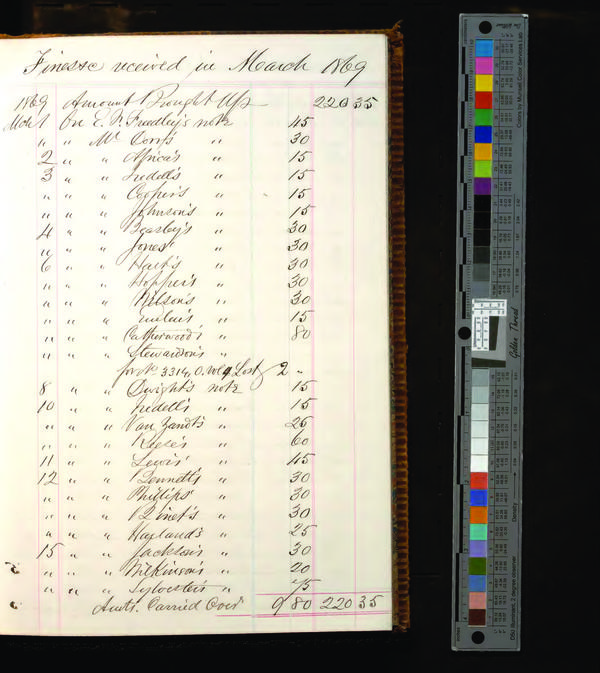 Finesse received in March 1869
1869 Amount Brought Up 220 35
Mar 1 On E. R. Friedley's note 45
" " Mr Corry's " 30
2 " " Africa's " 15
3 " " Iredell's " 15
" " " Cooper's " 15
" " " Johnson's " 15
4 " " Beasley's " 30
" " " Jones' " 30
6 " " Hart's " 30
" " " Hopper's " 30
" " " Wilson's " 30
" " " " 15
" " " Catherwood's " 80
" " " Stewardson's
for bk 3314, O. vol 9 Lost 2 "
8 " " Dwight's note 15
10 " " Iredell's " 15
" " " Van Zandt's " 25
" " " Keese's " 60
11 " " Lewis' " 45
12 " " Bennett's " 30
" " " Phillips' " 30
" " " Binet's " 30
" " " Hayland's " 25
15 " " Jackson's " 30
" " " Wilkinson's " 20
" " " Sylvester's " 75
Amts. Carried Over 9 80 220 35
Golden Thread
Density